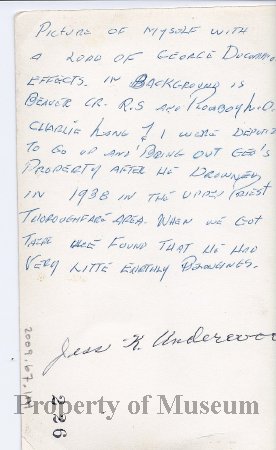 PICTURE OF MYSELF WITH
A LOAD OF GEORGE
EFFECTS. IN BACKGROUND IS
BEAVER CR. R.S AND
CHARLIE LONG & I WERE
TO GO UP AND BRING OUT GEO'S
PROPERTY AFTER HE DROWNED
IN 1938 IN THE UPPER PRIEST
THOROUGHFARE AREA. WHEN WE GOT
THERE WE FOUND THAT HE HAD
VERY LITTE EARTHLY BELONGINGS.
Jess K. Underwoo
2009.67.
226
Property of Museum